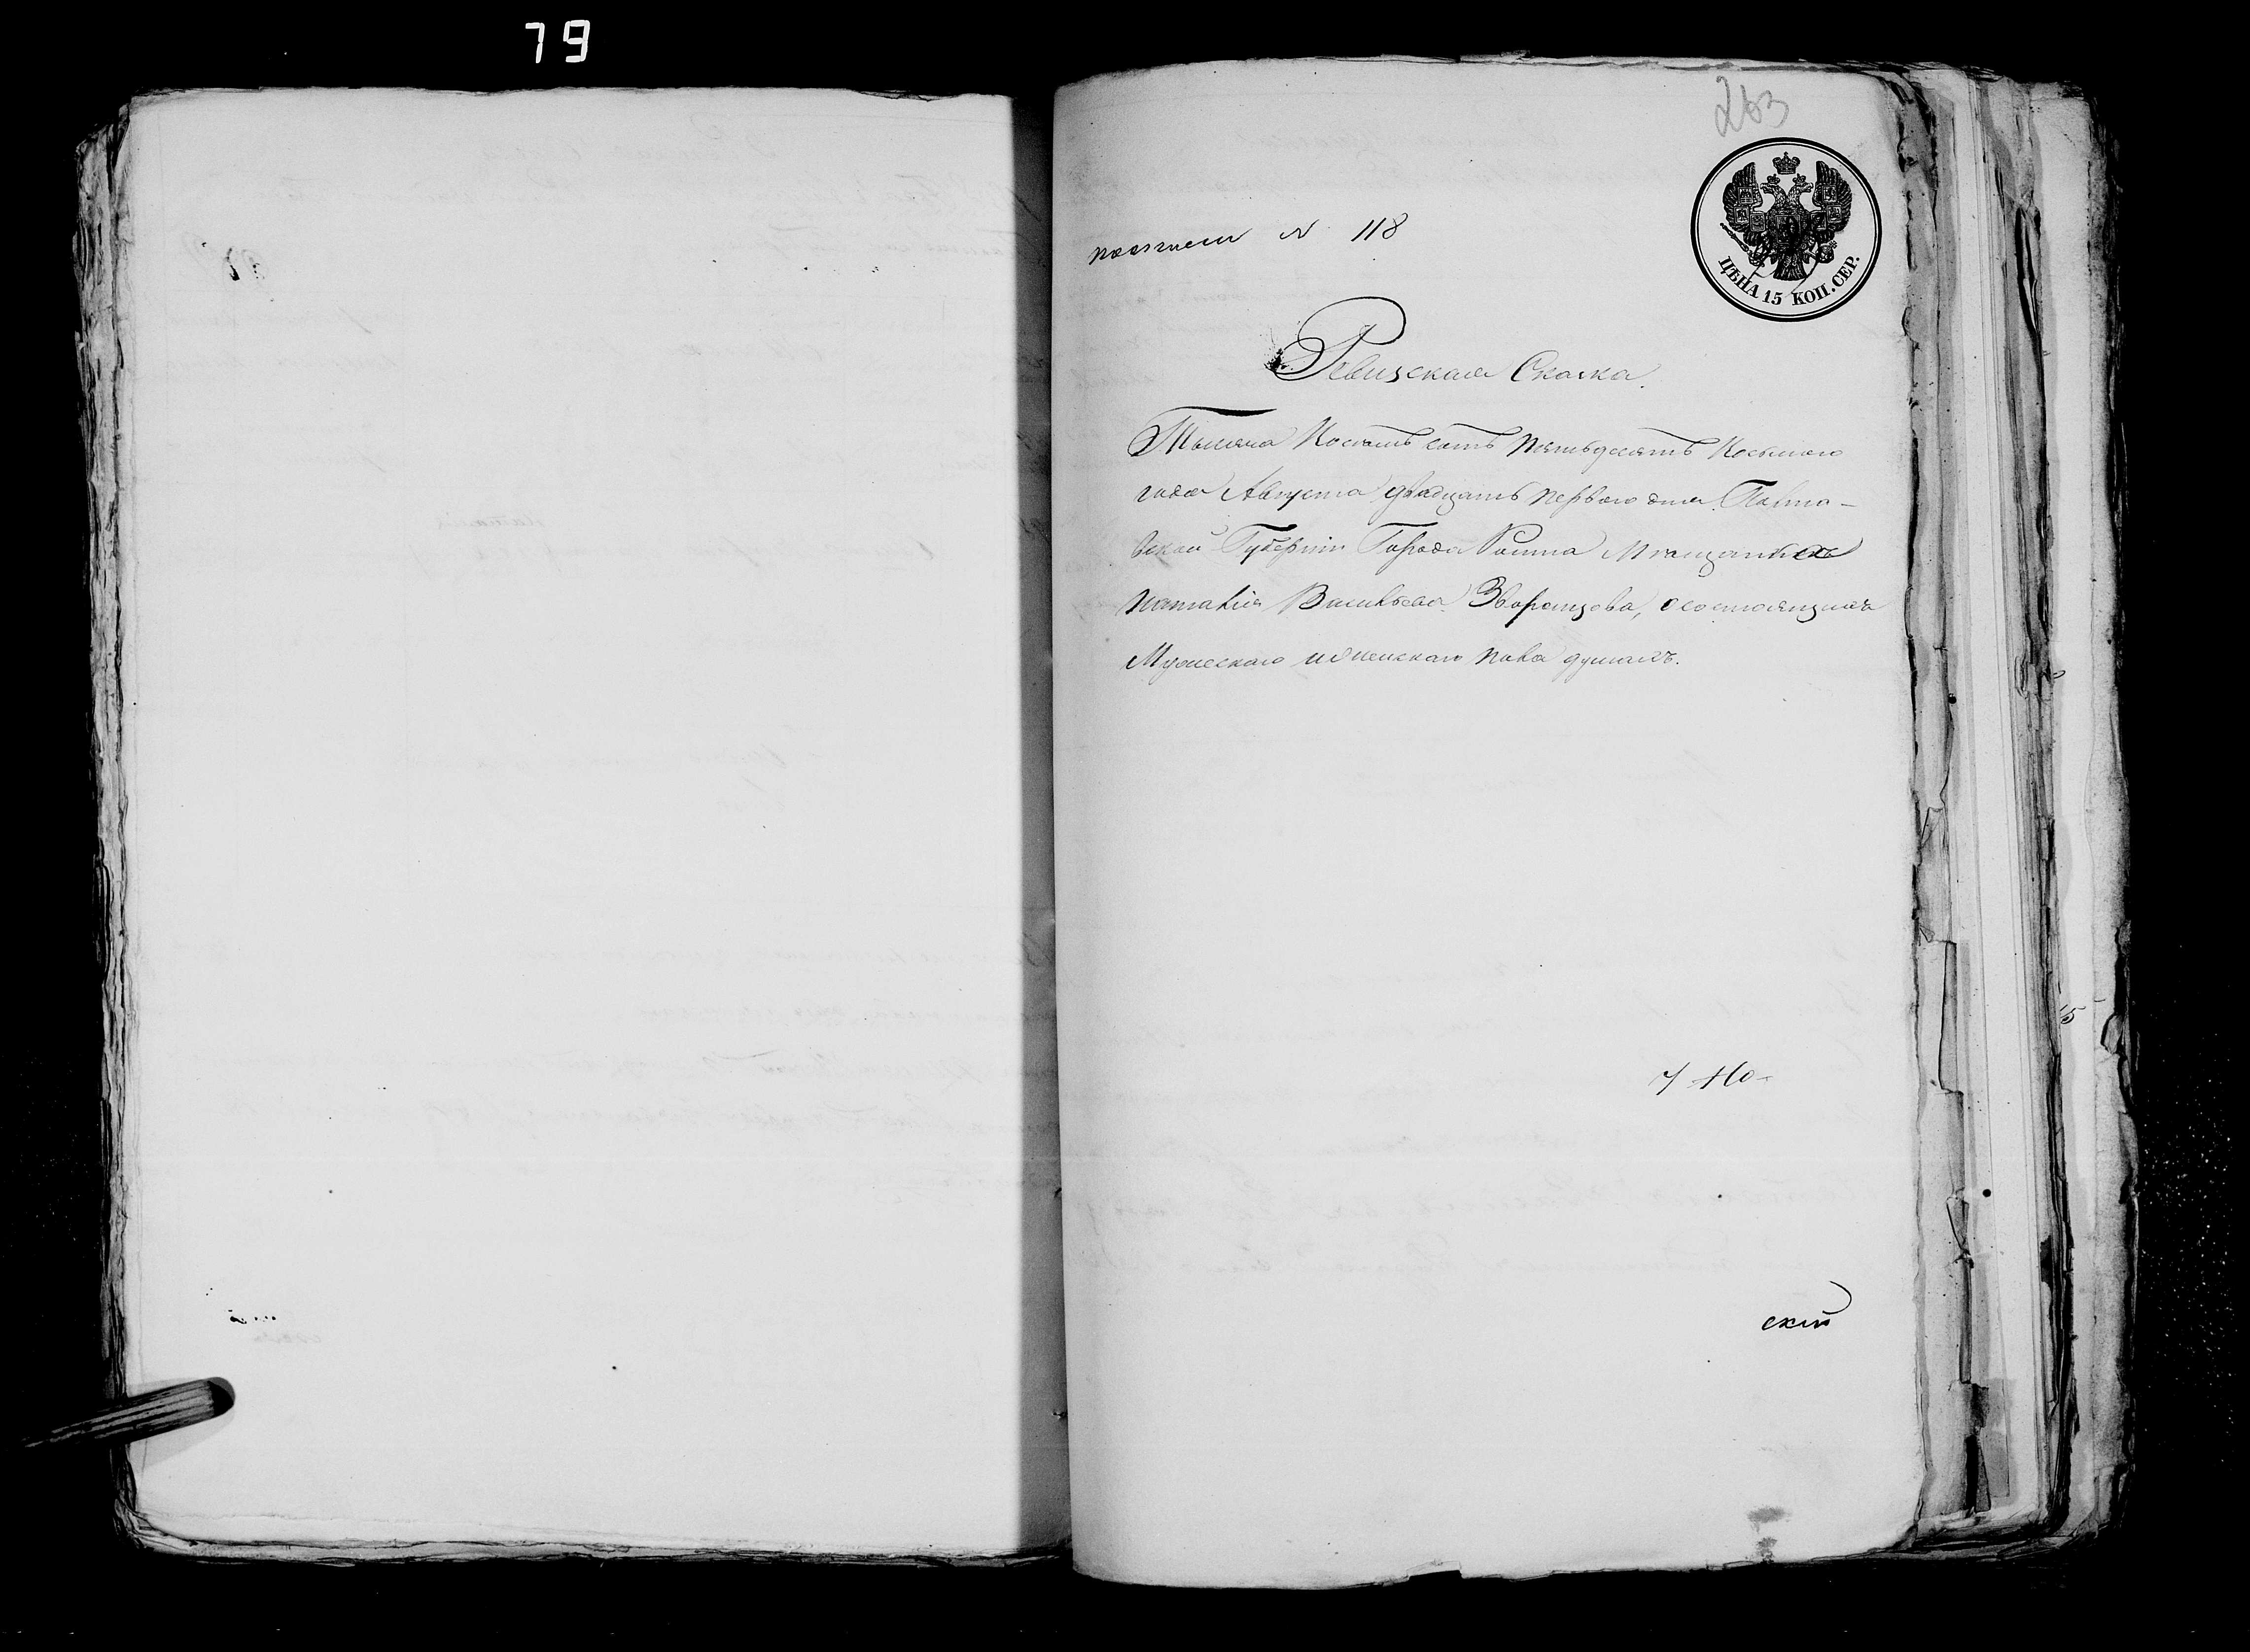 79
263
ЦѢНА 15 КОП. СЕР.
N 118
Ревизская Сказка.
Тысяча Восемь сотъ пятьдесятъ Восьмого
года Августа двадцать первого дня Полта-
вской Губерніи Города Ромна Мещанки
Наталіи Васильева Зворонцова, о состоящихъ
Мужескаго и женскаго пола душахъ.
скій